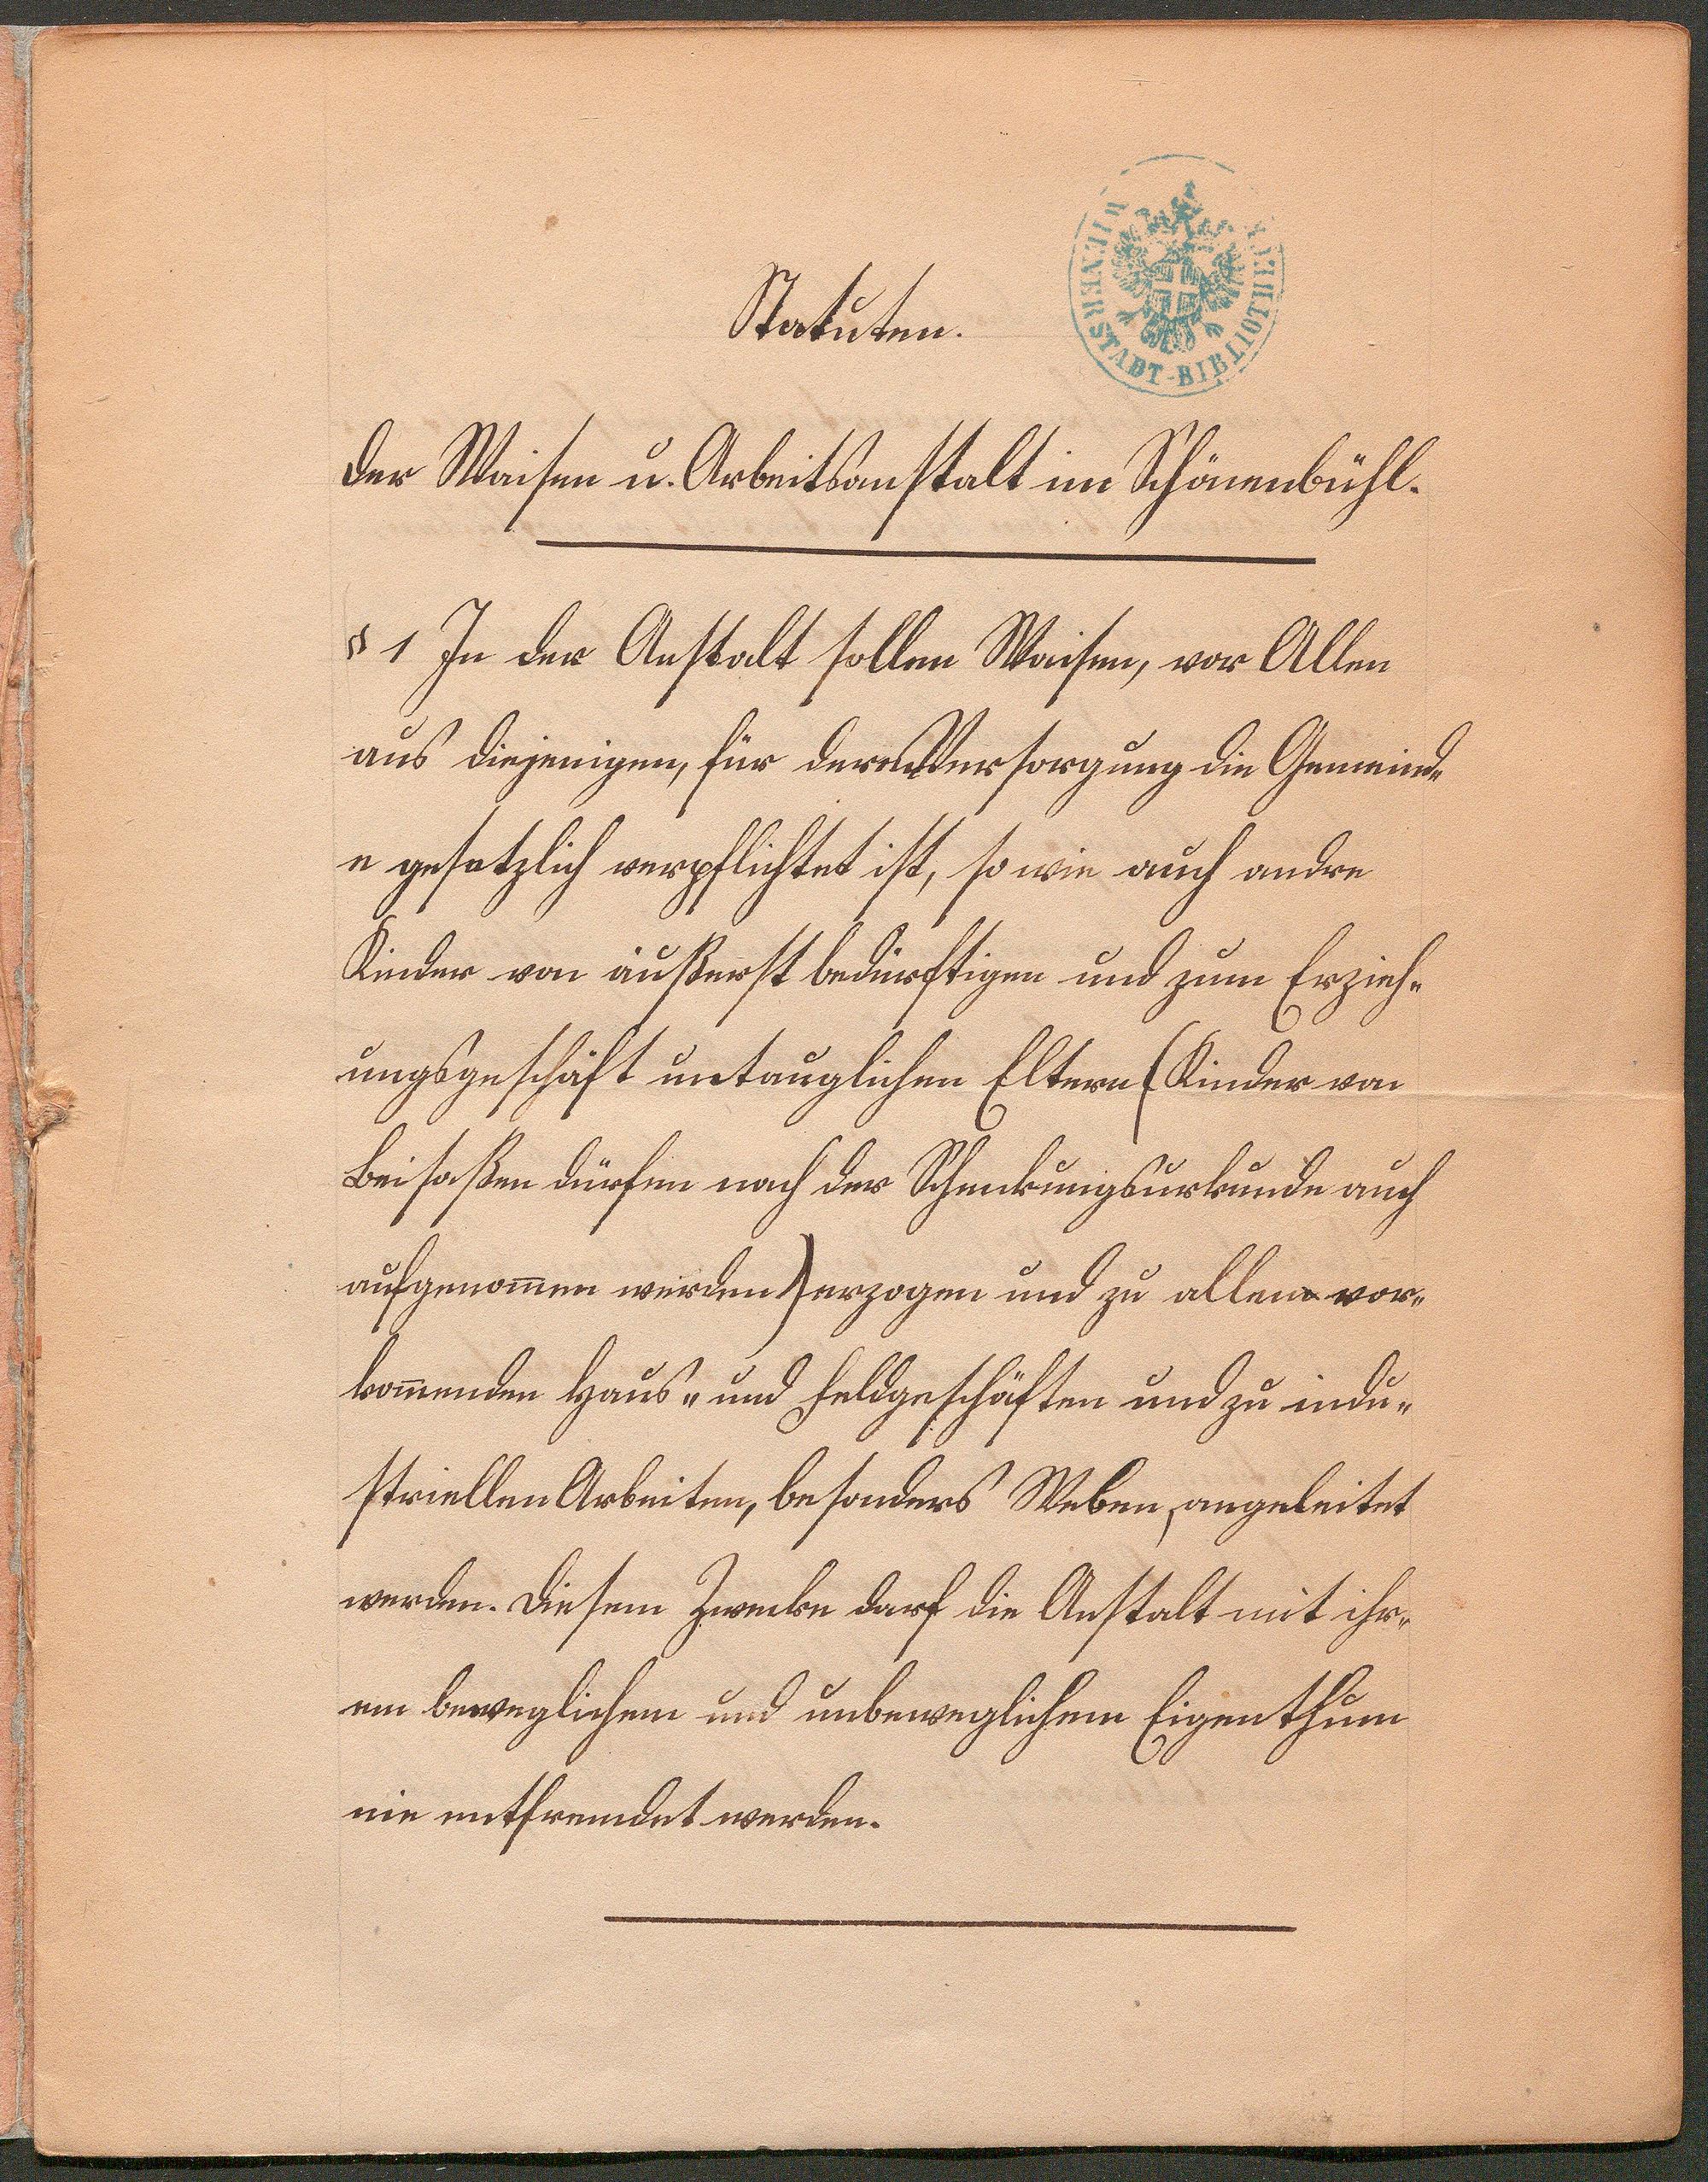 WIENER STADT-BIBLIOTHEK
Statuten.
der Waisen u. Arbeitsanstalt im Schönenbühl.
§ 1 In der Anstalt sollen Waisen, vor Allen
aus diejenigen, für deren Versorgung die Gemeind-
e gesetzlich verpflichtet ist, so wie auch andre
Kinder von äußerst bedürftigen und zum Erzieh-
ungsgeschäft untauglichen Eltern (Kinder von
Beisaßen dürfen nach der Schenkungsurkunde auch
aufgenom̅en werden) erzogen und zu allen vor-
kom̅enden Haus- und Feldgeschäften und zu indu-
striellen Arbeiten, besonders Weben, angeleitet
werden. Diesem Zwecke darf die Anstalt mit ihr-
em beweglichem und unbeweglichem Eigenthum
nie entfremdet werden.